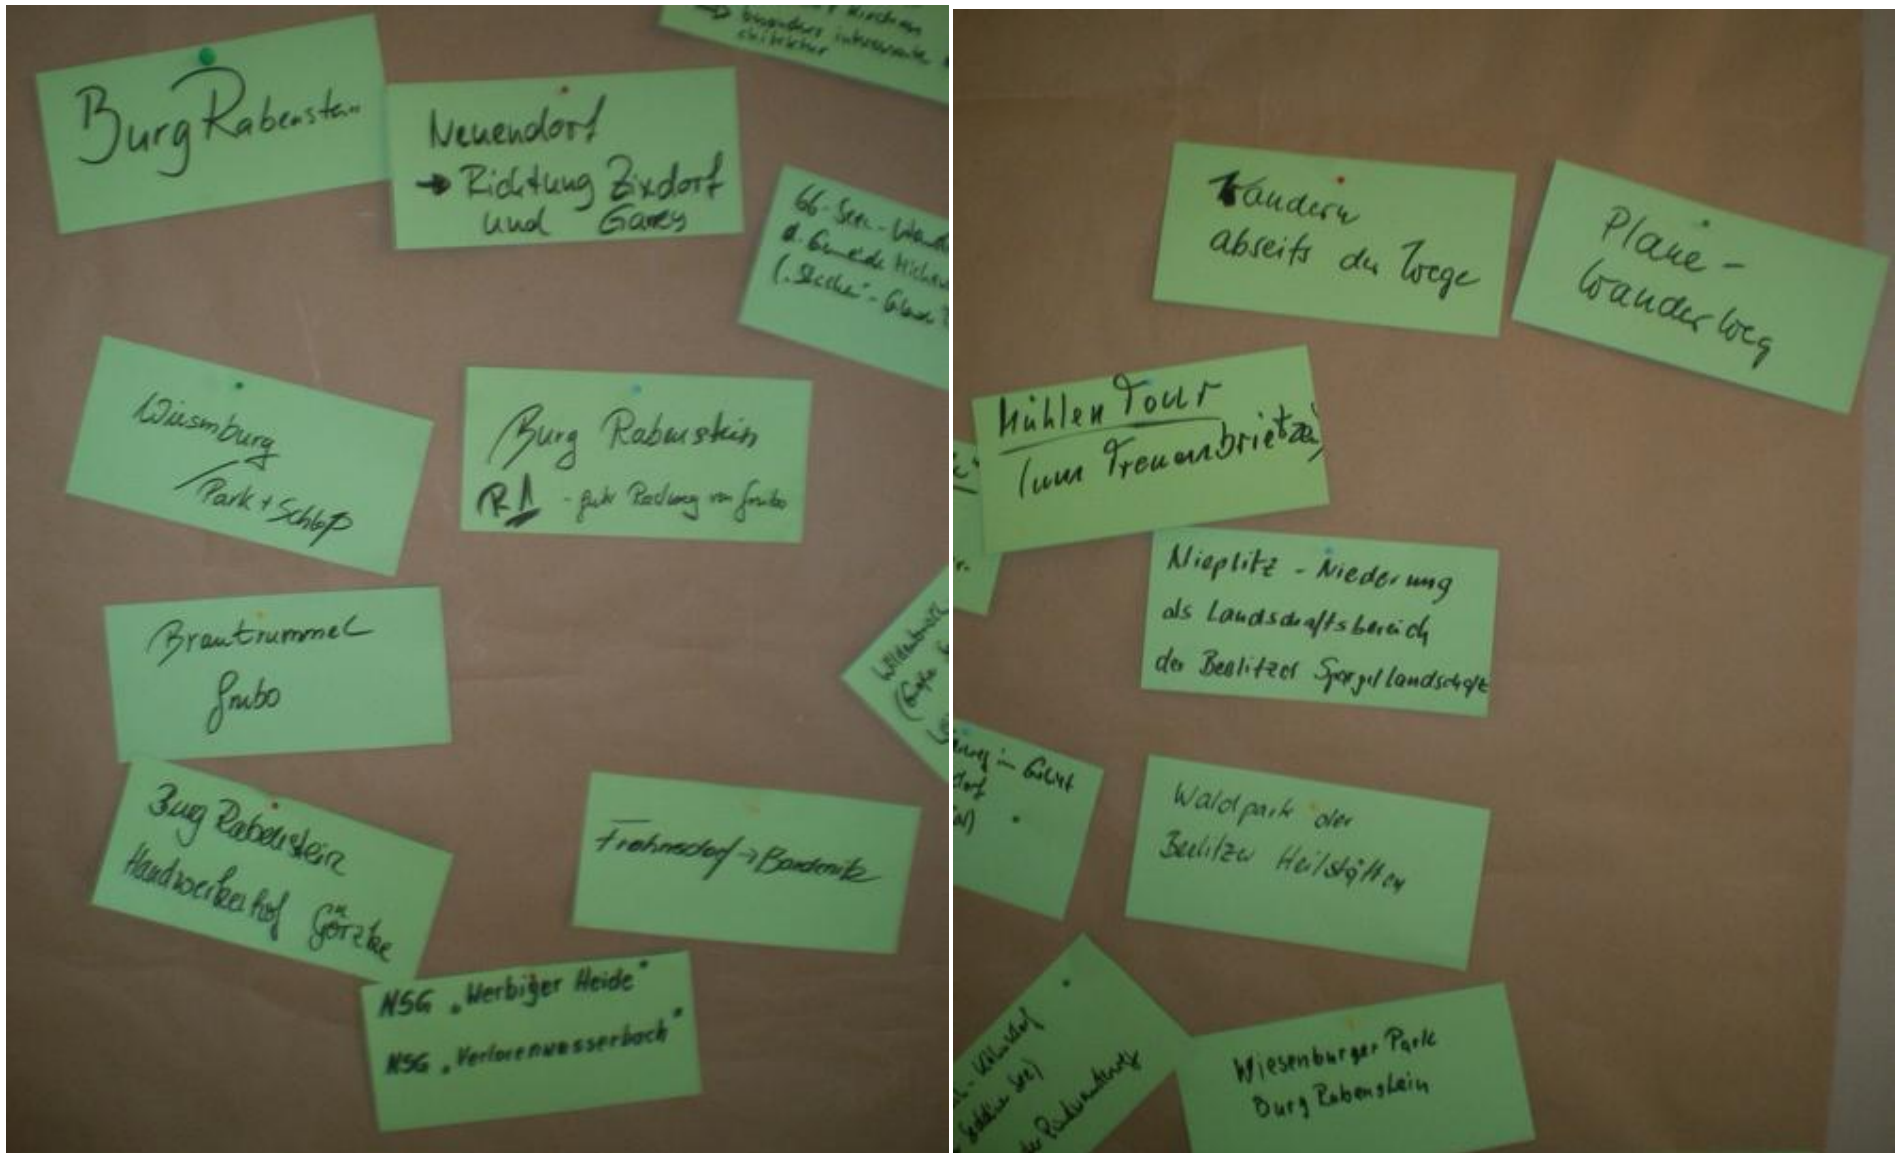 Kirchen
besonders interessante
Burg Rabenstein
Neuendorf
→ Richtung Zixdorf
und Garrey
66-Seen-
d. Gemeinde
Wiesenburg
Park + Schloß
Burg Rabenstein
R1 - gute Radweg von Grubo
Brautrummel
Grubo
Burg Rabenstein
Handwerkerhof Görzke
Frohnsdorf → Bardenitz
NSG „Werbiger Heide"
NSG „Verlorenwasserbach"
Wandern
abseits der Wege
Plane -
Wanderweg
Mühlen Tour
(um Treuenbrietzen)
Nieplitz - Niederung
als Landschaftsbereich
der Beelitzer Spargellandschaft
im Gebiet
Waldpark der
Beelitzer Heilstätten
Wiesenburger Park
Burg Rabenstein